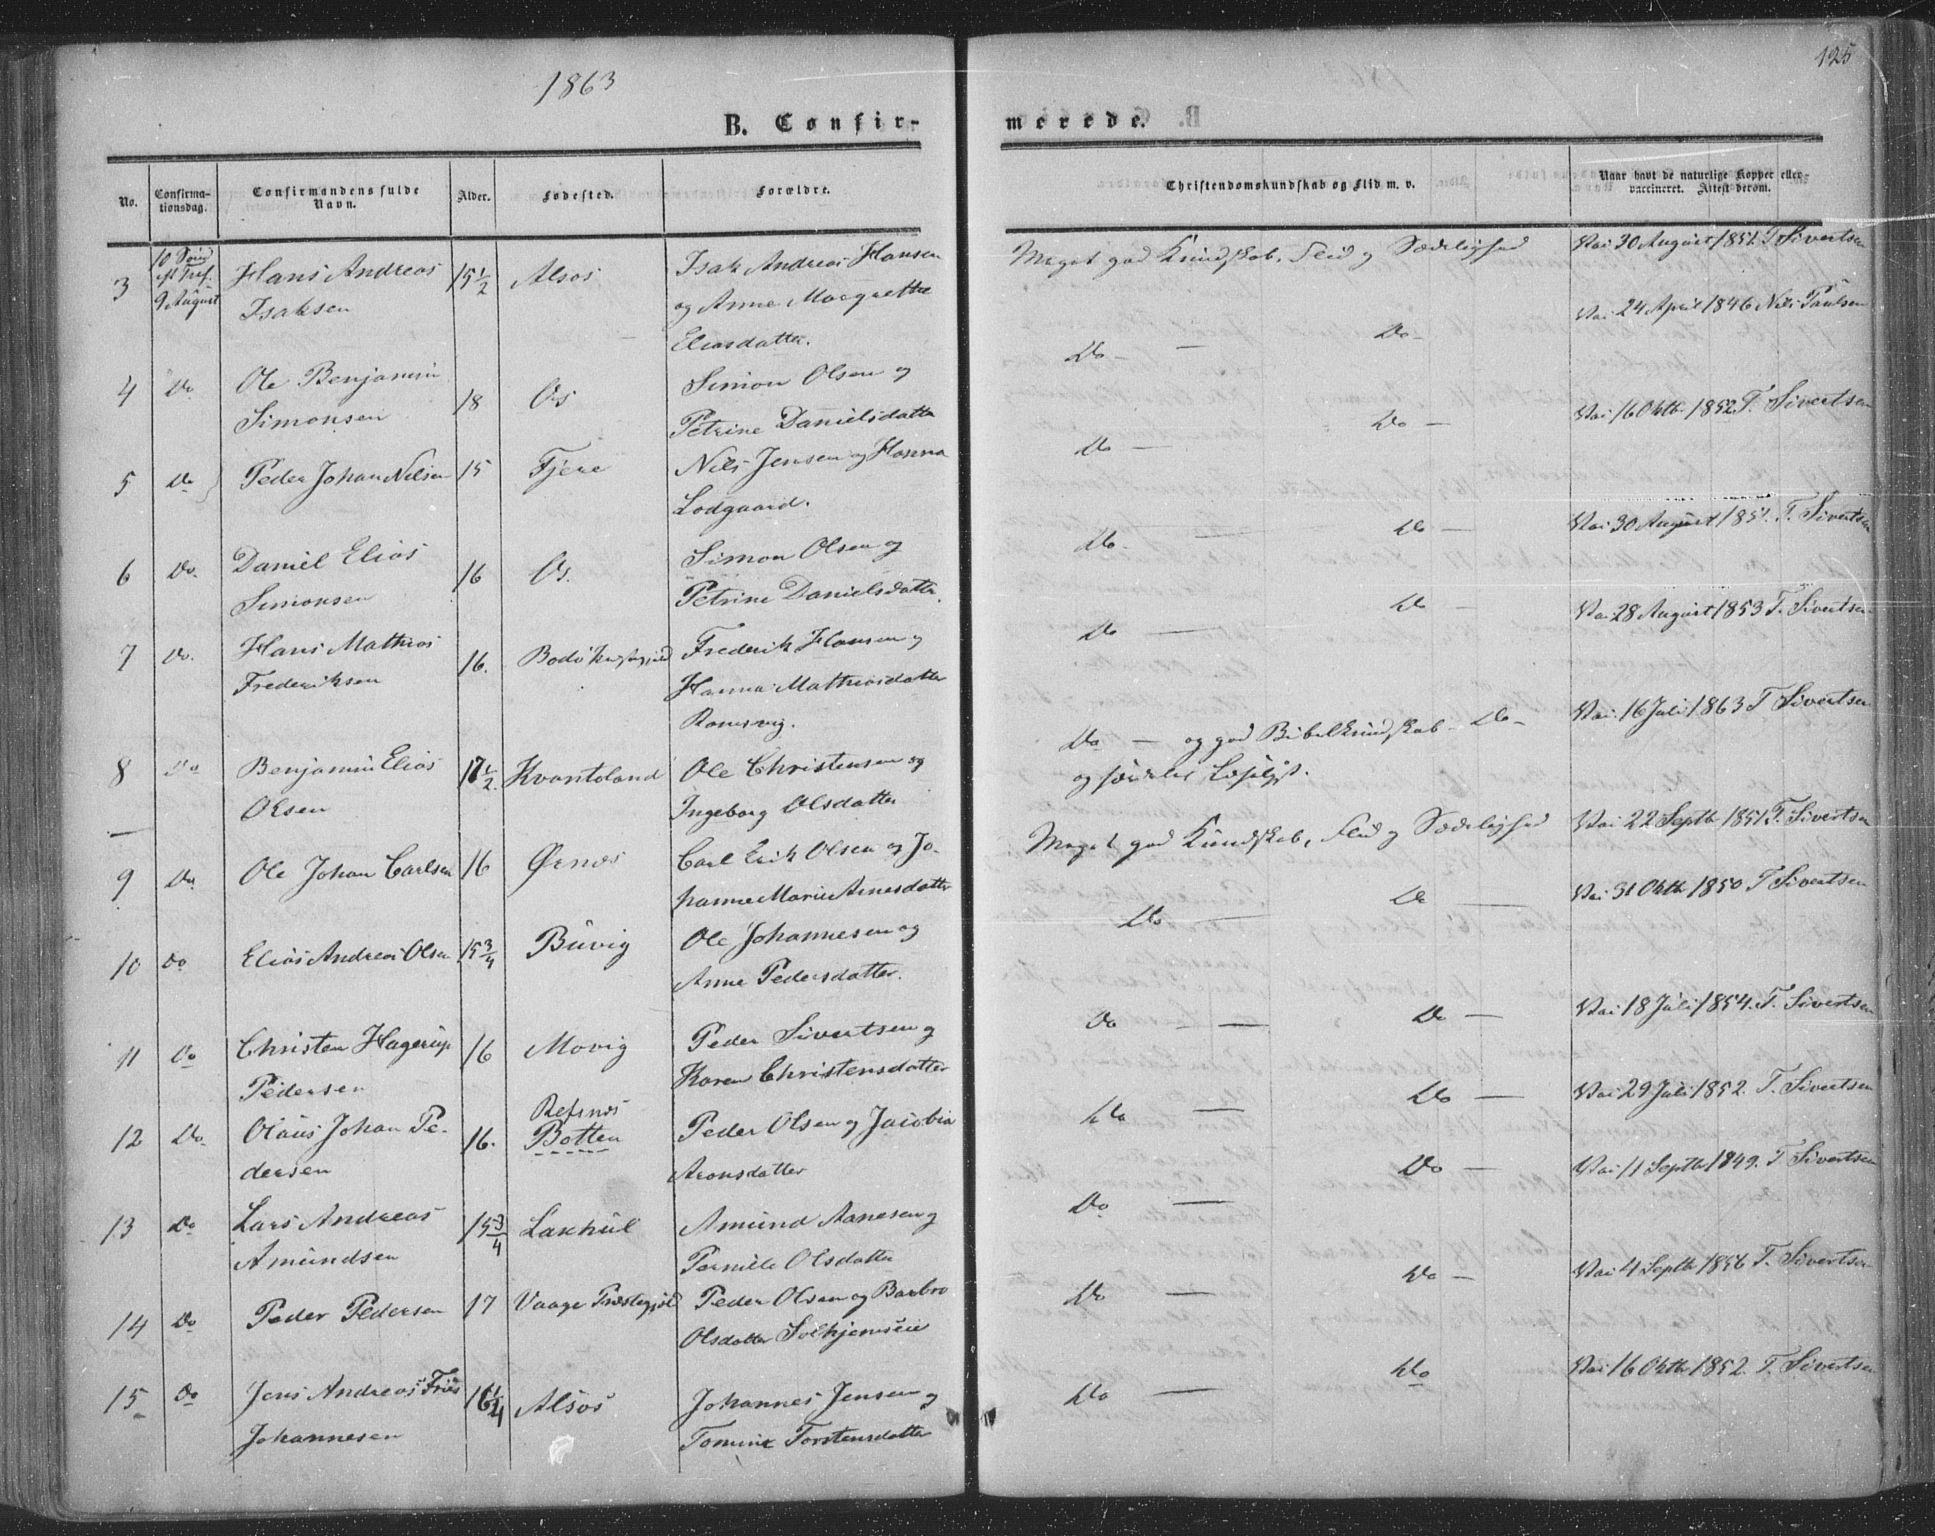 1863
125
B. Confir-
merede.
No.
Confirma-
tionsdag.
Confirmandens fulde
Navn.
Alder.
Fødested.
Forældre.
Christendomskundskab og Flid m. v.
Naar havt de naturlige Kopper eller
vaccineret. Attest derom.
3
9 August
Hans Andreas
Isaksen
15 1/2
Alsos
Isak Andreas Hansen
og Anne Margrethe
Eliasdatter.
Meget god Kundskab, Flid og Sædelighed
Vac. 30 August 1851. T. Sivertsen
4
Do
Ole Benjamin
Simonsen
18
Os
Simon Olsen og
Petrine Danielsdatter
Do — Do —
Vac. 24 April 1846 Nils Paulsen
5
Do
Peder Johan Nilsen
15
Fjere
Nils Jensen og Hanna
Lodgaard.
Do — Do —
Vac. 16 Oktb. 1852. T. Sivertsen
6
Do.
Daniel Elias
Simonsen
16
Os.
Simon Olsen og
Petrine Danielsdatter.
Do. — Do —
Vac. 30 August 1851. T. Sivertsen
7
Do.
Hans Mathias
Frederiksen
16.
Frederik Hansen og
Hanna Mathiasdatter
Do — Do —
Vac. 28 August 1853 T. Sivertsen
8
Do
Benjamin Elias
Olsen
17 1/2.
Kvantoland
Ole Christensen og
Ingeborg Olsdatter
Do — og god Bibelkundskab Do —
Vac. 16 Juli 1863 T Sivertsen
9
Do
Ole Johan Carlsen
16
Ørnæs
Carl Erik Olsen og Jo-
hanne Marie Arnesdatter
Meget god Kundskab, Flid og Sædelighed
Vac. 22 Septb. 1851 T. Sivertsen
10
Do
Elias Andreas Olsen
15 3/4
Buvig
Ole Johannesen og
Anne Pedersdatter.
Do — Do —
Vac. 31 Oktb. 1850 T Sivertsen
11
Do
Christen Hagerup
Pedersen
16
Movig
Peder Sivertsen og
Karen Christensdatter
Do — Do —
Vac. 18 Juli 1854. T. Sivertsen
12
Do.
Olaus Johan Pe-
dersen
16.
Refsnes
Botten
Peder Olsen og Jacobia
Aronsdatter
Do — Do —
Vac. 29 Juli 1852. T. Sivertsen
13
Do
Lars Andreas
Amundsen
15 3/4
Laxhul
Amund Aanesen og
Pernille Olsdatter
Do — Do —
Vac. 11 Septb. 1849. T Sivertsen
14
Do
Peder Pedersen
17
Vaage Præstegjeld
Peder Olsen og Barbro
Olsdatter
Do — Do —
Vac. 4 Septb 1856 T. Sivertsen
15
Do
Jens Andreas Friis
Johannesen
16 1/4
Alsos
Johannes Jensen og
Tomine Torstensdatter
Do — Do
Vac. 16 Oktb 1852. T. Sivertsen